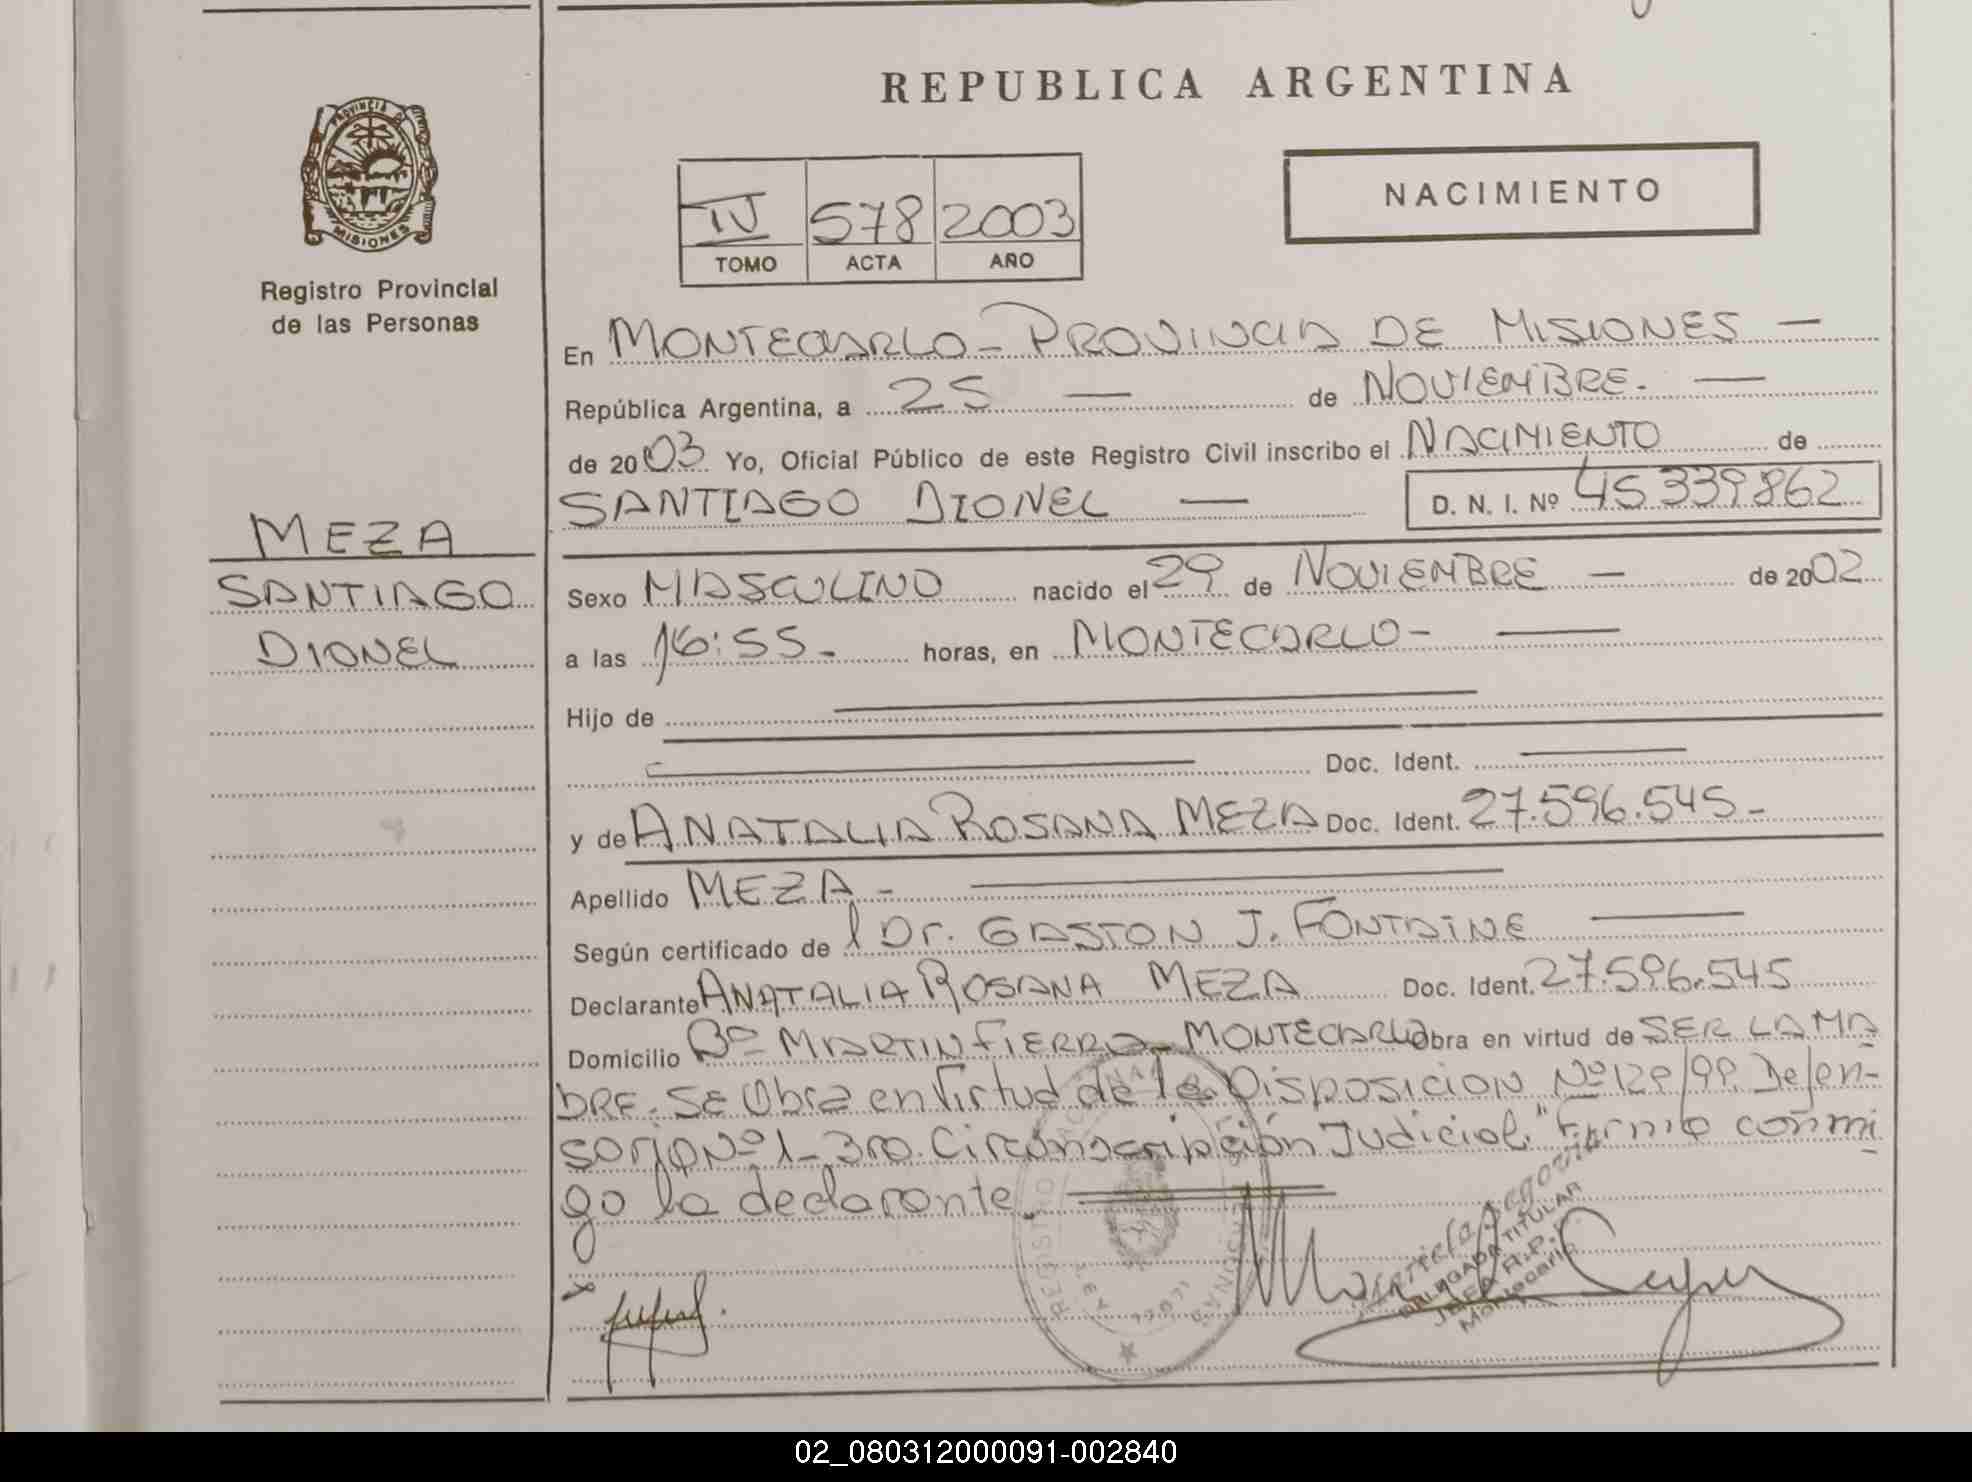 REPUBLICA ARGENTINA
PROVINCIA DE
MISIONES
Registro Provincial
de las Personas
IV 578 2003
TOMO ACTA AÑO
NACIMIENTO
En MONTECARLO - PROVINCIA DE MISIONES —
República Argentina, a 25 — de NOVIEMBRE. —
de 2003 Yo, Oficial Público de este Registro Civil inscribo el NACIMIENTO de
SANTIAGO DIONEL — D. N. I. Nº 45.339.862
MEZA
SANTIAGO
DIONEL
Sexo MASCULINO nacido el 29 de NOVIEMBRE — de 2002
a las 16:55. horas, en MONTECARLO - —
Hijo de —
— Doc. Ident. —
y de ANATALIA ROSANA MEZA Doc. Ident. 27.596.545 -
Apellido MEZA - —
Según certificado de l Dr. GASTON J. FONTAINE —
Declarante ANATALIA ROSANA MEZA Doc. Ident. 27.596.545
Domicilio Bº MARTIN FIERRO - MONTECARLO obra en virtud de SER LA MA
DRE. SE Obra en Virtud de la Disposicion Nº 129/99. Defen-
soria Nº 1 - 3ra. Circunscripción Judicial." Firma con mi
go la declarante.
REGISTRO
DELEGADA TITULAR
JEFA R.P.
Montecarlo
02_080312000091-002840